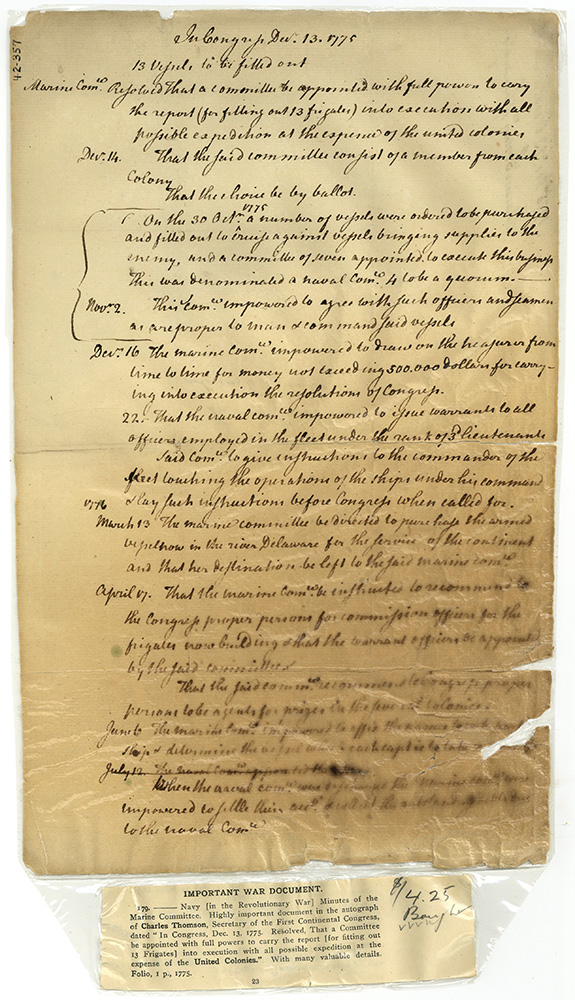 42-357
In Congress Decr. 13. 1775
13 Vessels to be fitted out
Marine Comee. Resolved That a committee be appointed with full power to carry
the report (for fitting out 13 frigates) into execution with all
possible expedition at the expence of the united colonies
Decr. 14. That the said committee consist of a member from each
Colony
That the choice be by ballot.
On the 30 Octr. 1775 a number of vessels were ordered to be purchased
and fitted out to cruise against vessels bringing supplies to the
enemy, and a committee of seven appointed to execute this business
This was denominated a naval Comee. 4 to be a quorum.
Novr. 2. This Comee. impowered to agree with such officers and seamen
as are proper to man & command said vessels
Decr. 16 The marine Comee. impowered to draw on the treasurer from
time to time for money not exceeding 500.000 dollars for carry-
ing into execution the resolutions of Congress.
22. That the naval comee. impowered to issue warrants to all
officers employed in the fleet under the rank of 3d lieutenants
Said Comee. to give instructions to the commander of the
fleet touching the operations of the ships under his command
& lay such instructions before Congress when called for.
1776
March 13 The marine committee be directed to purchase the armed
vessel now in the river Delaware for the service of the continent
and that her destination be left to the said marine comee.
April 17. That the marine Comee. be instructed to recommend to
the Congress proper persons for commission officers for the
frigates now building & that the warrant officers be appointed
by the said committee
That the said comee. recommend to Congress proper
persons to be agents for prizes in the several colonies.
June 6 The marine Comee. impowered to affix the names to each
ship & determine the vessel each capt is to take
July 12. The naval Comee. appointed
When the naval comee. were
impowered to settle their
to the naval Comee.
$/4.25
IMPORTANT WAR DOCUMENT.
179. —— Navy [in the Revolutionary War] Minutes of the
Marine Committee. Highly important document in the autograph
of Charles Thomson, Secretary of the First Continental Congress,
dated "In Congress, Dec. 13, 1775. Resolved, That a Committee
be appointed with full powers to carry the report [for fitting out
13 Frigates] into execution with all possible expedition at the
expense of the United Colonies." With many valuable details.
Folio, 1 p., 1775.
23